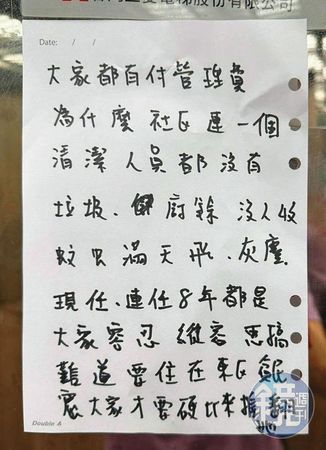 電梯股份有限公司
Date: / /
大家都有付管理員
為什麼社區連一個
清潔人員都沒有
垃圾、廚餘 沒人收
蚊虫滿天飛、灰塵
現任、連任8年都是
大家容忍 維客 思搞
難道要住在東區
大家才要硬比來推翻
他
Double A
鏡週刊